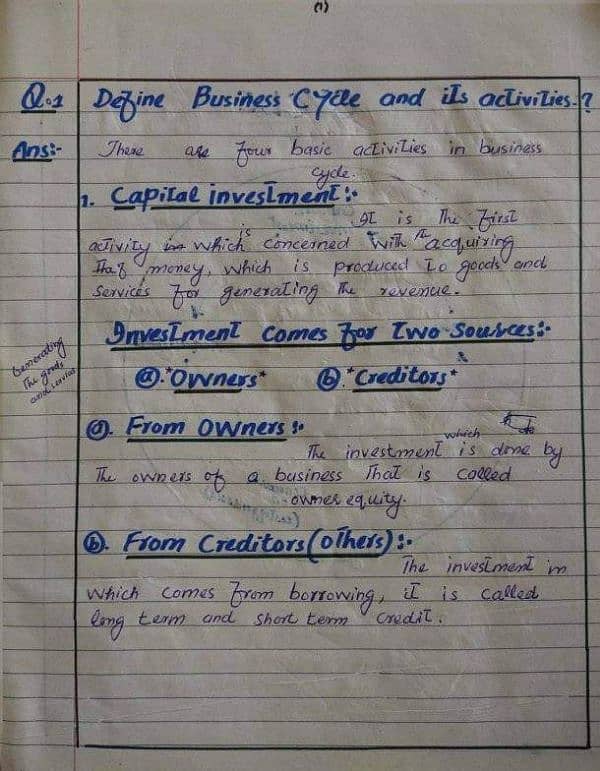 (1)
Q.1 Define Business Cycle and its activities.?
Ans:- There are four basic activities in business
cycle.
1. Capital investment:-
It is the first
activity in which is concerned with acquiring
that money, which is produced to goods and
services for generating the revenue.
Investment comes for two sources:-
Generating
the goods
and services
(a). "Owners" (b). "Creditors"
(a). From Owners :-
The investment which is done by
the owners of a business that is called
owner equity.
(b). From Creditors (others) :-
The investment in
which comes from borrowing, it is called
long term and short term credit.